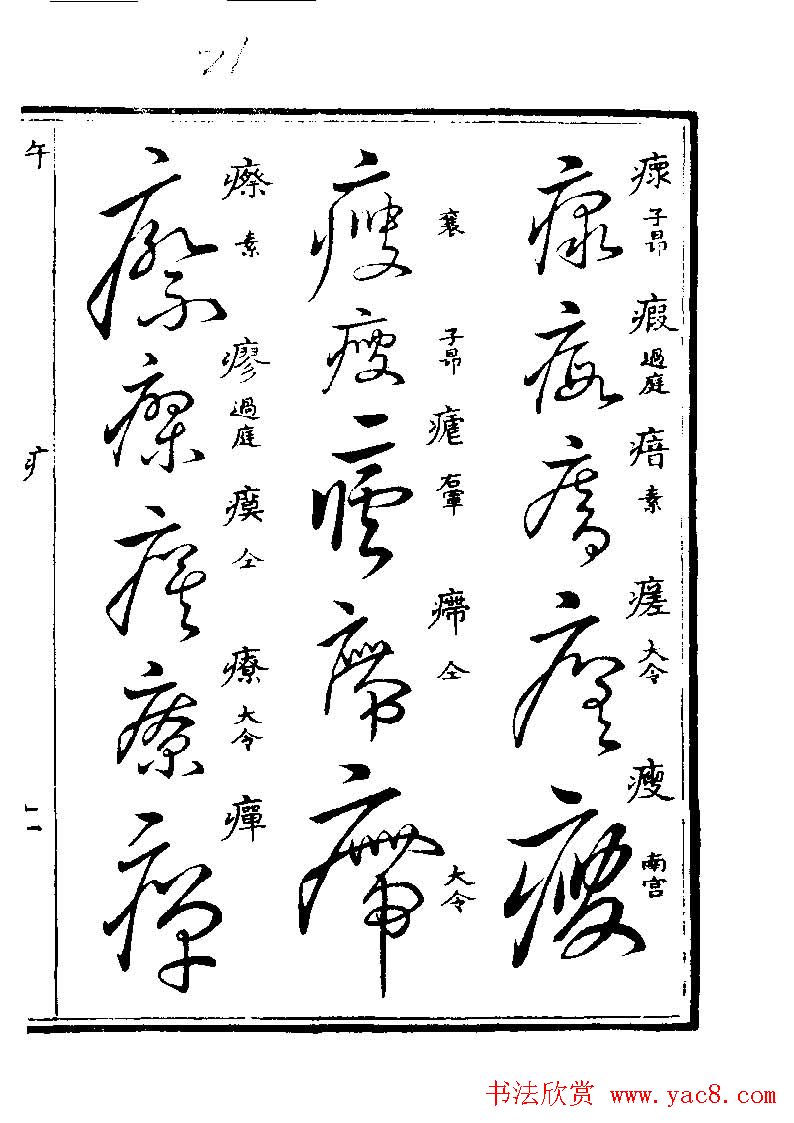 21
瘝 子昂
瘕 過庭
瘖 素
瘥 大令
瘦 南宮
襄
子昂
瘧 右軍
瘆 仝
大令
瘵 素
瘳 過庭
瘼 仝
療 大令
癉
午
疒
二
书法欣赏 www.yac8.com